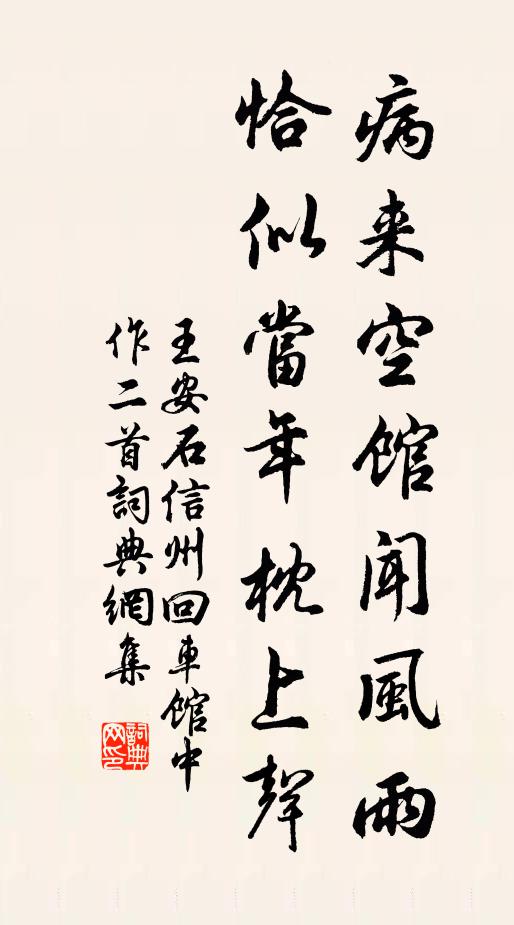 病来空館聞風雨
恰似當年枕上聲
王安石信州回車館中
作二首詞典網集
詞典
网印